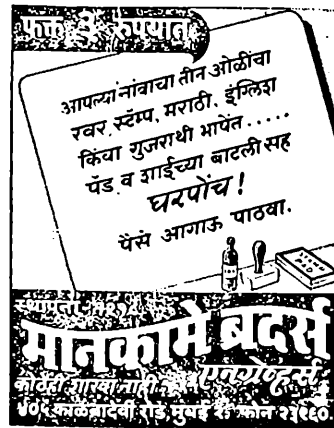 फक्त ३ रुपयात
आपल्या नांवाचा तीन ओळींचा
रबर स्टॅम्प, मराठी, इंग्लिश
किंवा गुजराथी भाषेंत.....
पॅड व शाईच्या बाटली सह
घरपोंच!
पैसे आगाऊ पाठवा.
STAMP PAD
स्थापना
मानकामे ब्रदर्स
एनग्रेव्हर्स
कोठेही शाखा नाही
४०५ काळबादेवी रोड, मुंबई २. फोन २३९६०.